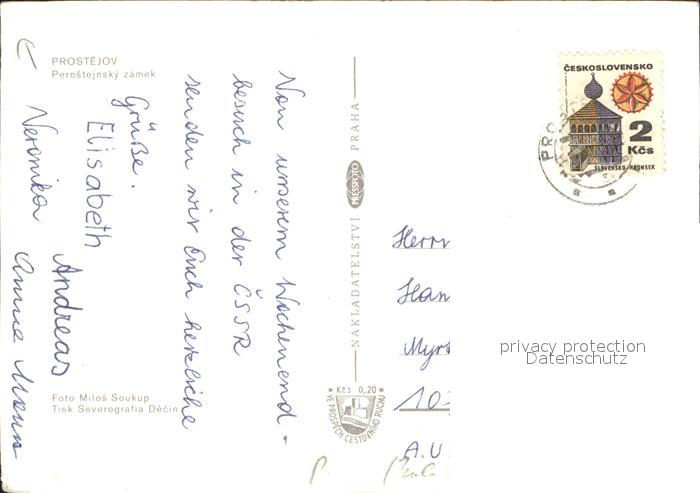 PROSTĚJOV
Pernštejnský zámek
Von unserem Wochenend-
besuch in der ČSSR
senden wir Euch herzliche
Grüße.
Elisabeth
Andreas
Veronika
Foto Miloš Soukup
Tisk Severografia Děčín
NAKLADATELSTVÍ PRESSFOTO PRAHA
Kčs 0,20
VE PROSPĚCH CESTOVNÍHO RUCHU
ČESKOSLOVENSKO
2
Kčs
SLOVENSKO-HRONSEK
Herrn
Han
Myrt
A.U
privacy protection
Datenschutz